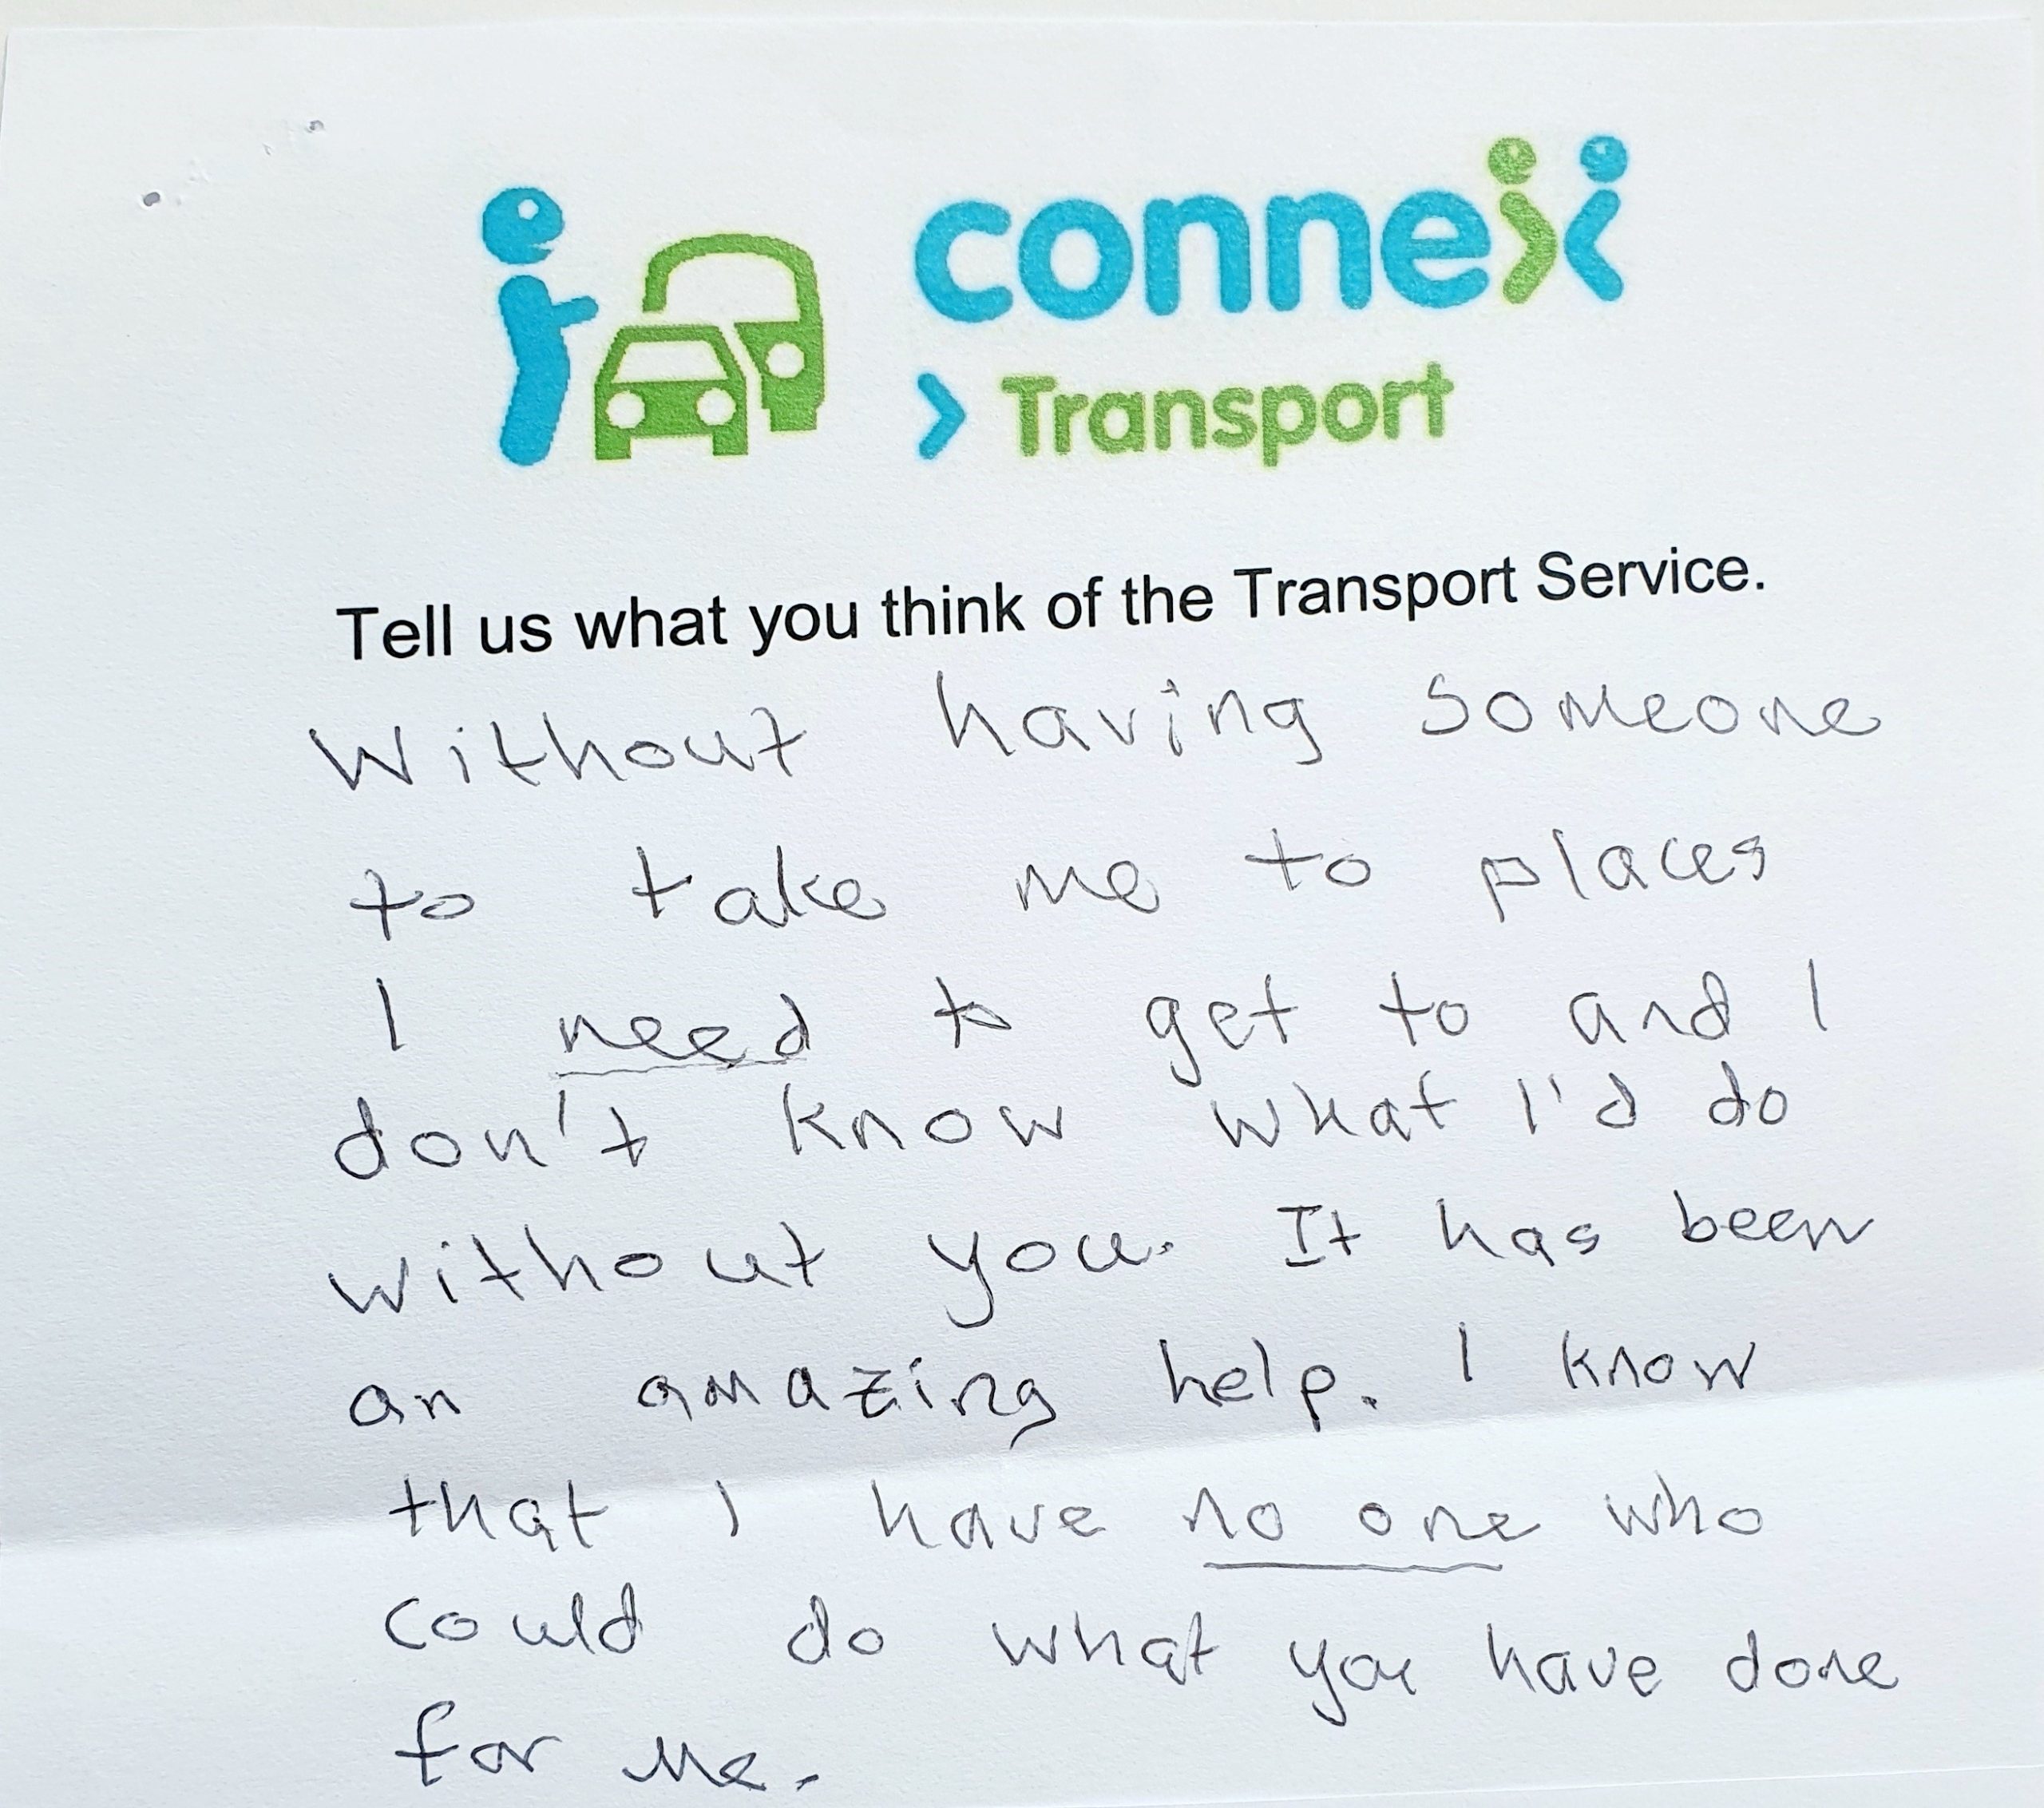 connex
> Transport
Tell us what you think of the Transport Service.
Without having someone
to take me to places
I need to get to and I
don't know what I'd do
without you. It has been
an amazing help. I know
that I have no one who
could do what you have done
for me.